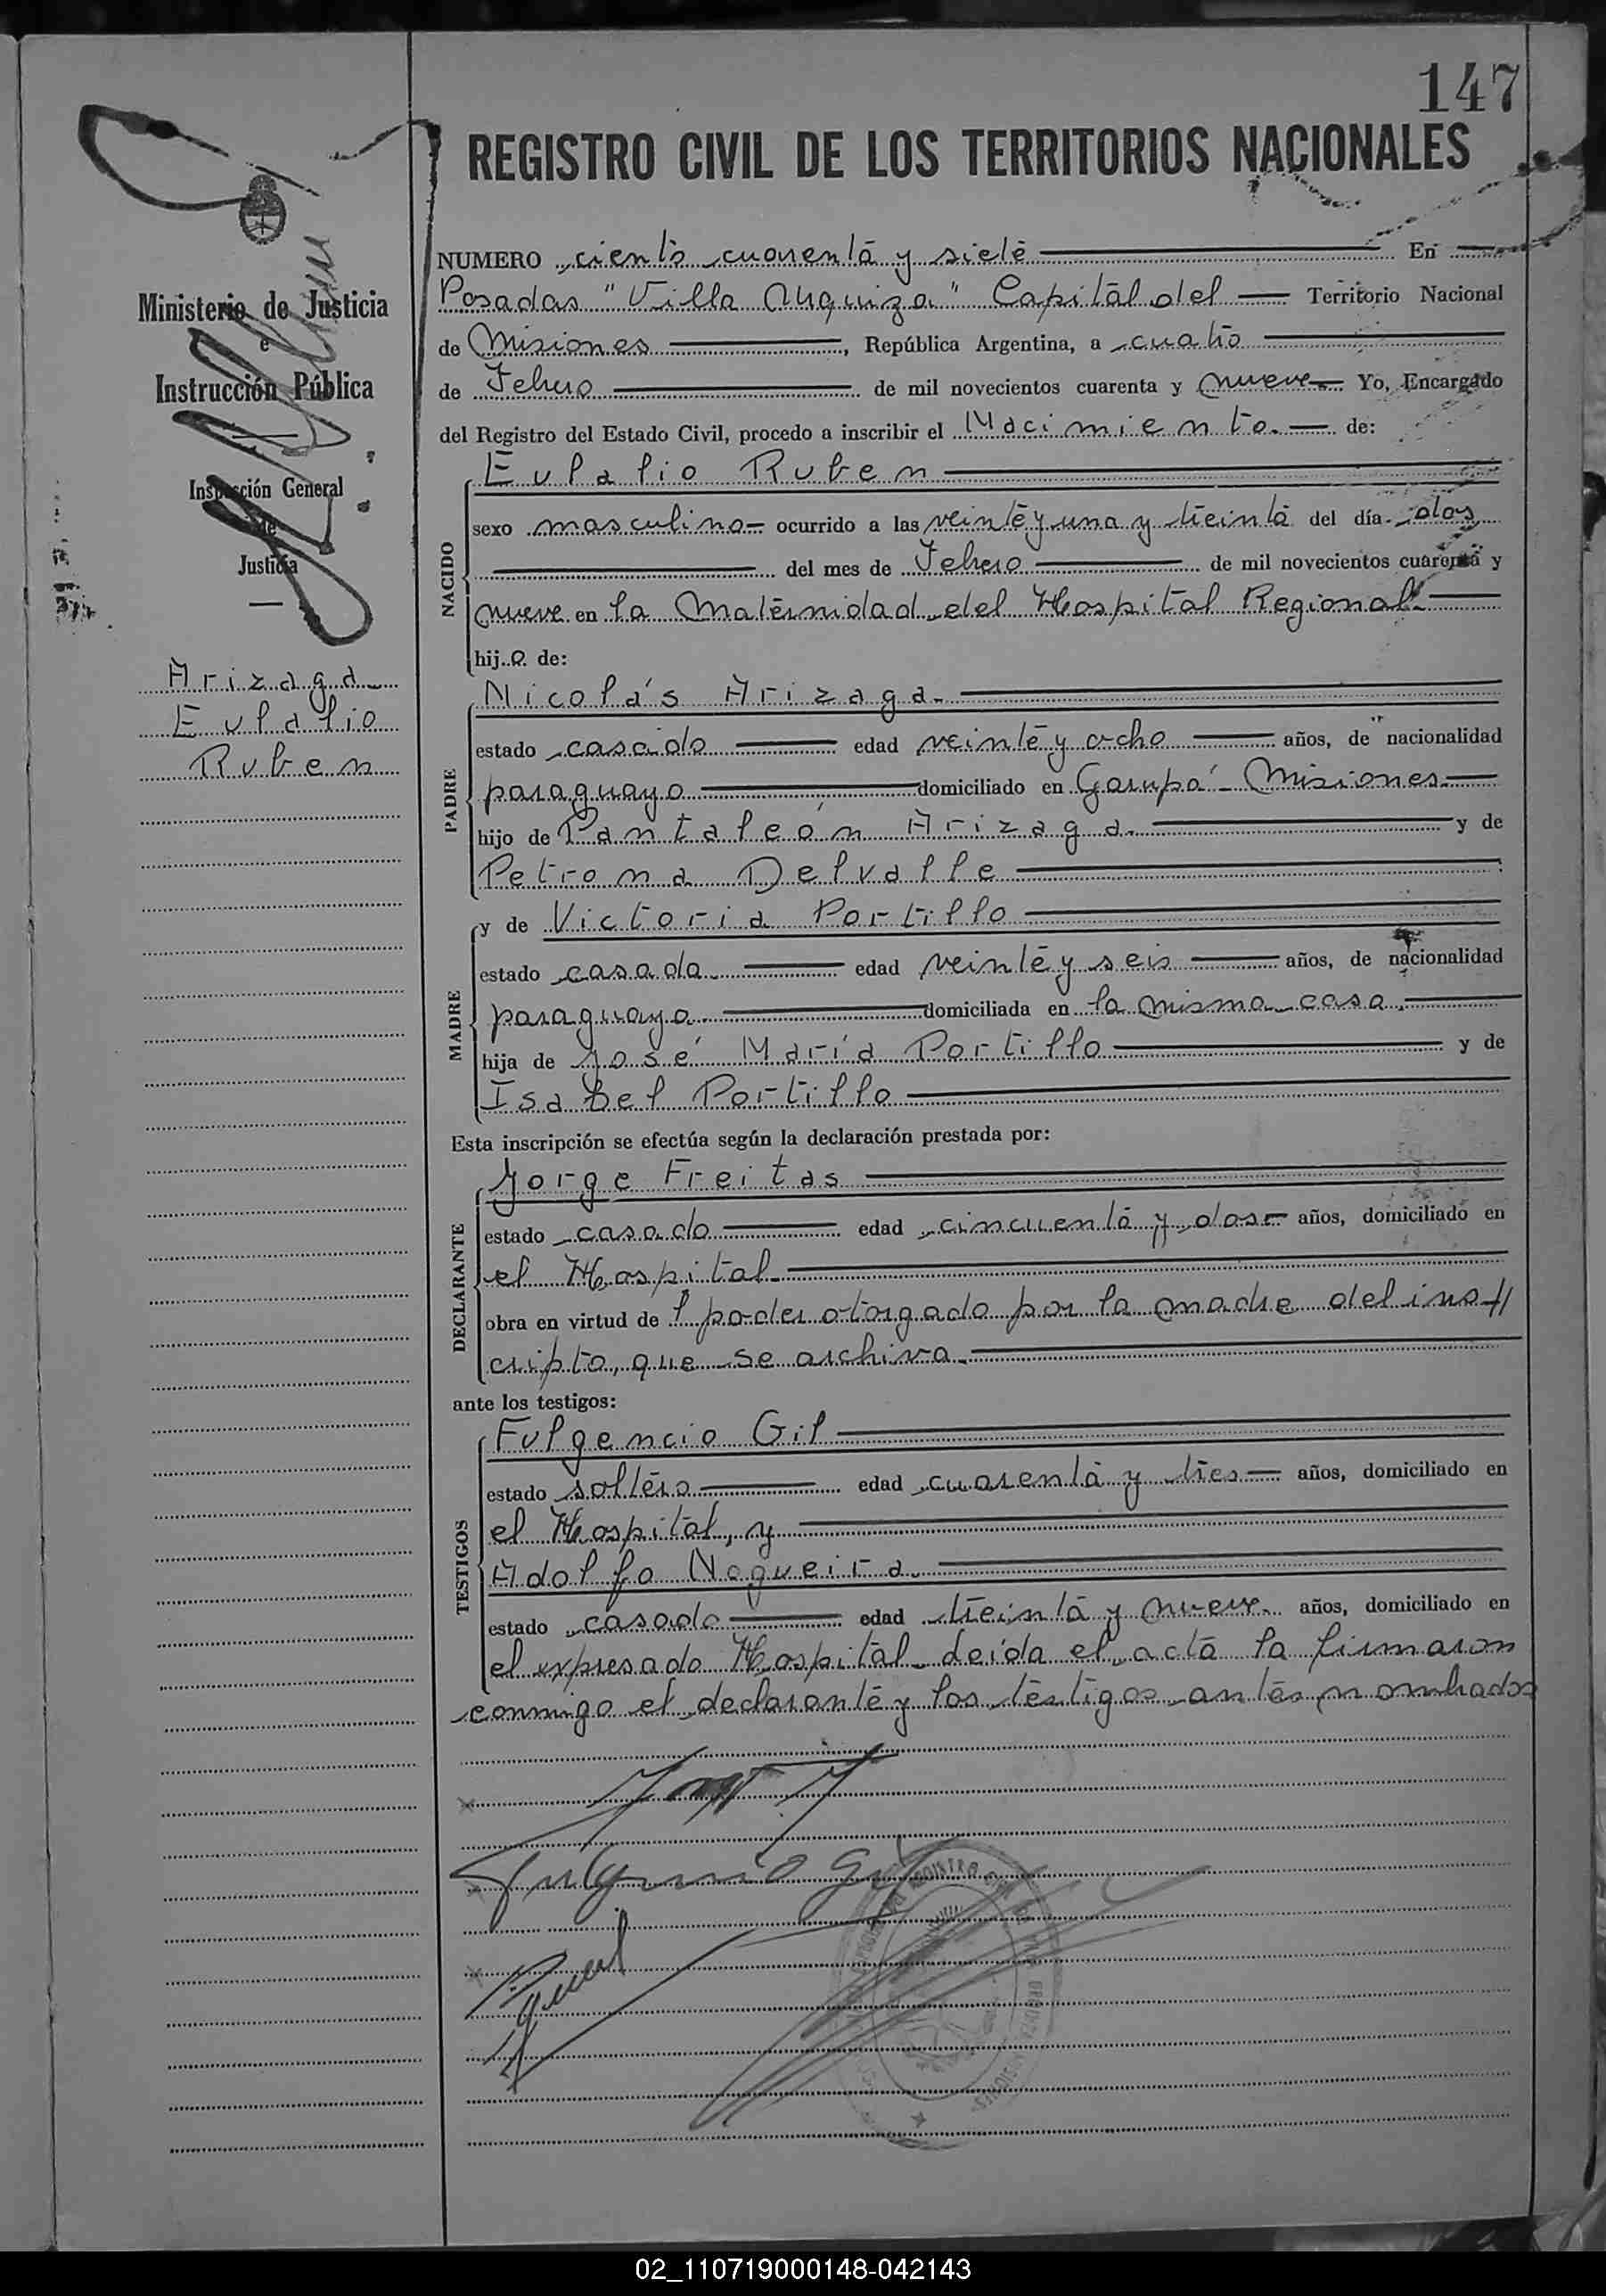 147
REGISTRO CIVIL DE LOS TERRITORIOS NACIONALES
Ministerio de Justicia
e
Instrucción Pública
Inspección General
de
Justicia
Arizaga
Eulalio
Ruben
NUMERO ciento cuarenta y siete En
Posadas "Villa Urquiza" Capital del Territorio Nacional
de Misiones, República Argentina, a cuatro
de Febrero de mil novecientos cuarenta y nueve Yo, Encargado
del Registro del Estado Civil, procedo a inscribir el Nacimiento. de:
NACIDO
Eulalio Ruben
sexo masculino ocurrido a las veinte y una y treinta del día dos
del mes de Febrero de mil novecientos cuarenta y
nueve en la Maternidad del Hospital Regional
hijo de:
PADRE
Nicolás Arizaga
estado casado edad veinte y ocho años, de nacionalidad
paraguayo domiciliado en Garupá - Misiones
hijo de Pantaleón Arizaga y de
Petrona Delvalle
MADRE
y de Victoria Portillo
estado casada edad veinte y seis años, de nacionalidad
paraguaya domiciliada en la misma casa
hija de José María Portillo y de
Isabel Portillo
Esta inscripción se efectúa según la declaración prestada por:
DECLARANTE
Jorge Freitas
estado casado edad cincuenta y dos años, domiciliado en
el Hospital
obra en virtud de l poder otorgado por la madre del ins-//
cripto, que se archiva.
ante los testigos:
TESTIGOS
Fulgencio Gil
estado soltero edad cuarenta y tres años, domiciliado en
el Hospital, y
Adolfo Nogueira
estado casado edad treinta y nueve años, domiciliado en
el expresado Hospital. Leída el acta la firmaron
conmigo el declarante y los testigos antes nombrados
Fulgencio Gil
02_110719000148-042143